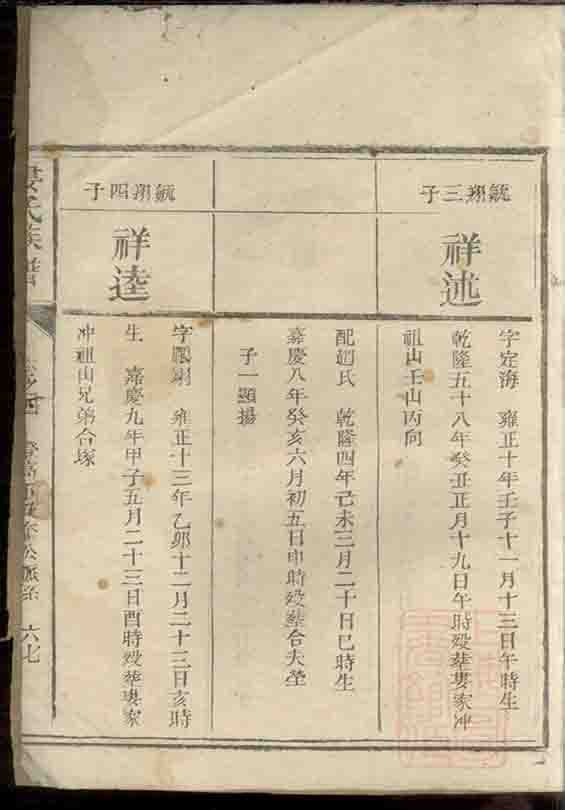 毓翔三子
祥述
字定海　雍正十年壬子十一月十三日午時生
乾隆五十八年癸丑正月十九日午時歿葬婁家冲
祖山壬山丙向
配趙氏　乾隆四年己未三月二十日巳時生
嘉慶八年癸亥六月初五日申時歿葬合夫塋
子一顯揚
毓翔四子
祥逵
字鵬翔　雍正十三年乙卯十二月二十三日亥時
生　嘉慶九年甲子五月二十三日酉時歿葬婁家
冲祖山兄弟合塚
婁氏族譜
六七